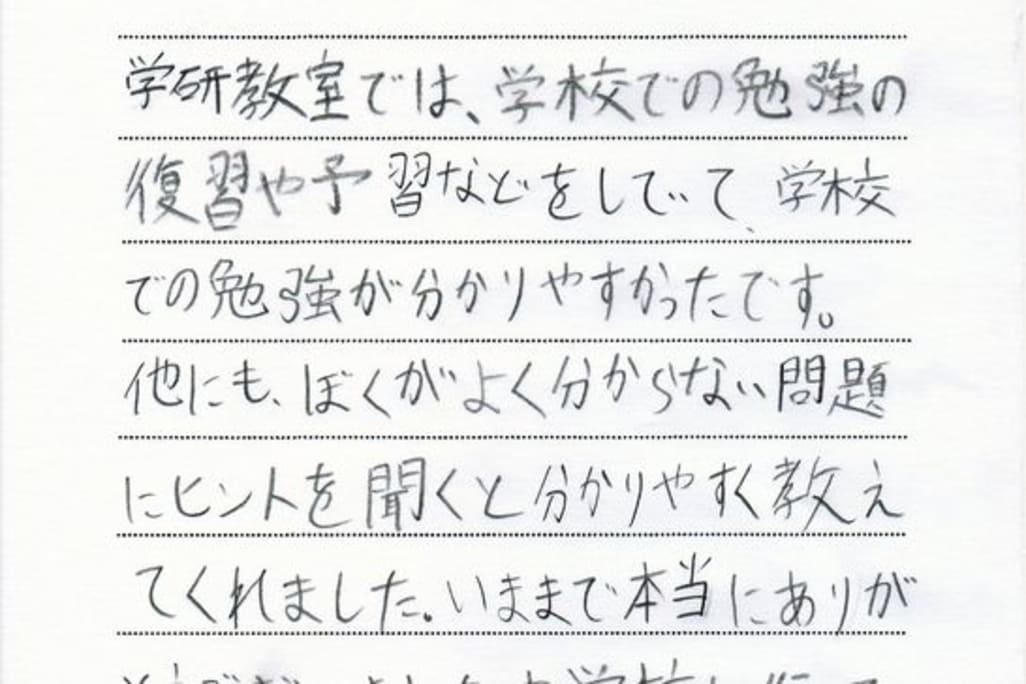 学研教室では、学校での勉強の
復習や予習などをしていて、学校
での勉強が分かりやすかったです。
他にも、ぼくがよく分からない問題
にヒントを聞くと分かりやすく教え
てくれました。いままで本当にありが